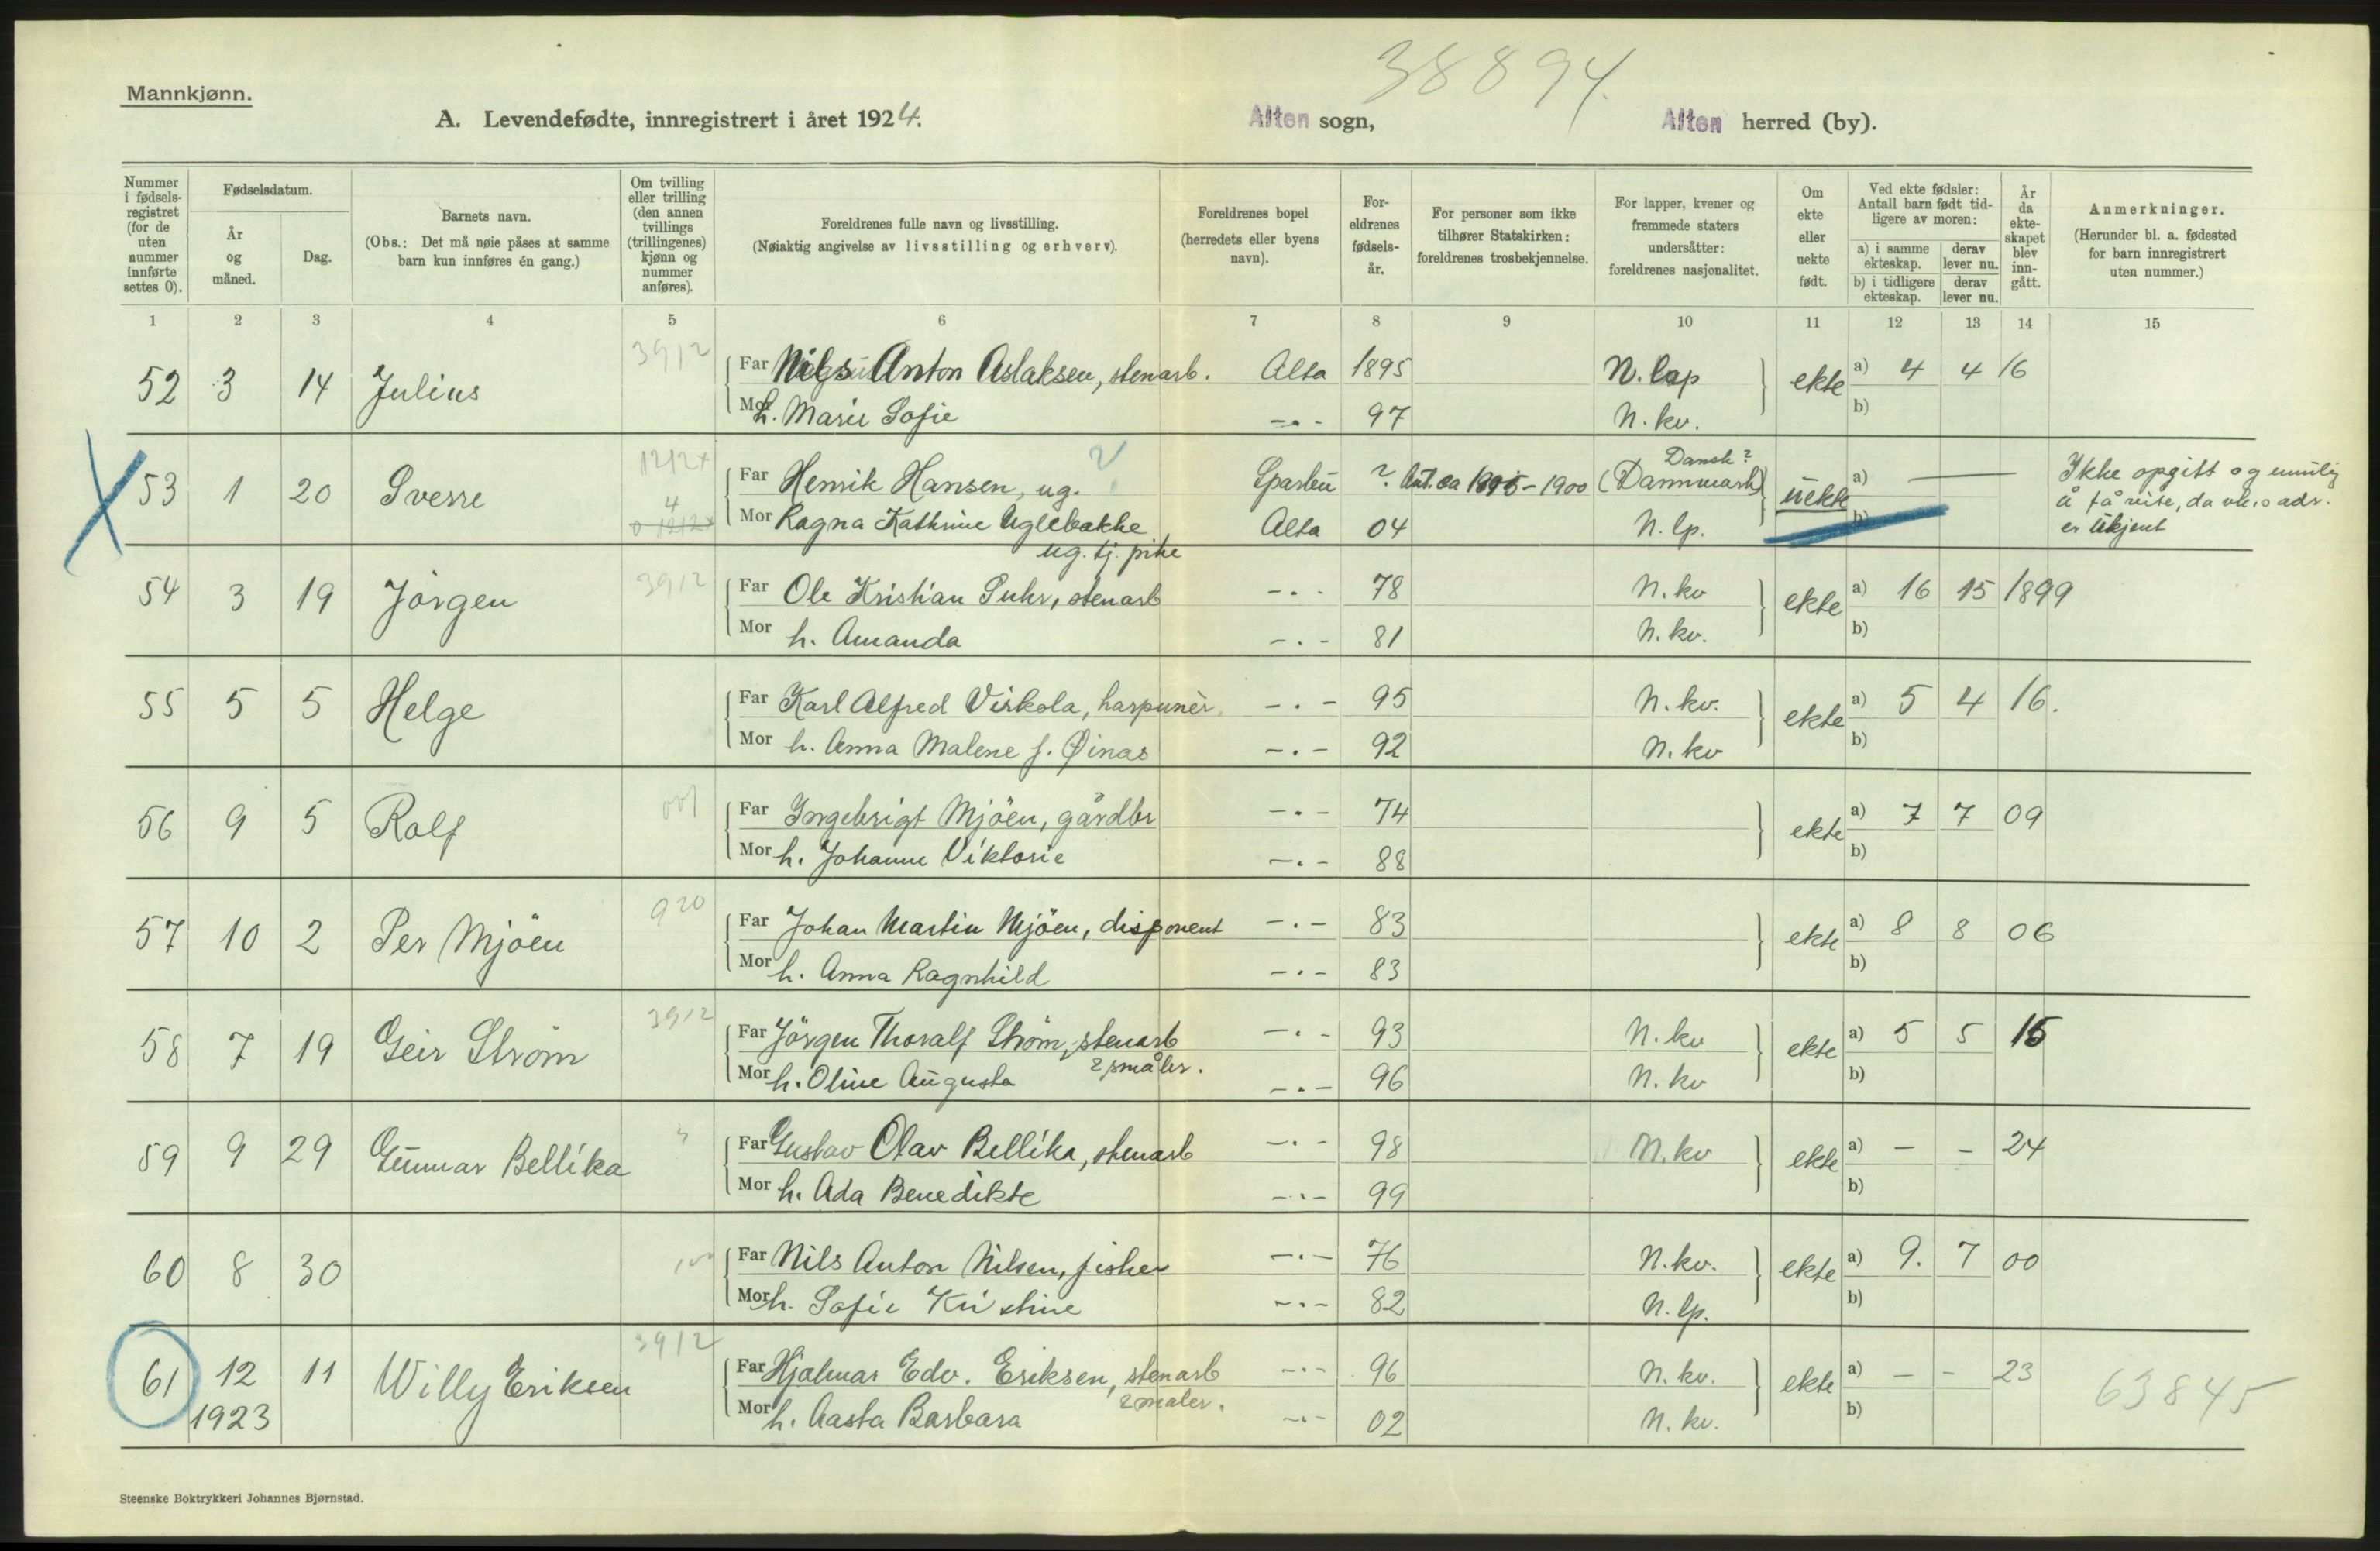 38894.
Mannkjønn.
A. Levendefødte, innregistrert i året 1924. Alten sogn, Alten herred (by).
Nummer i fødsels-registret (for de uten nummer innførte settes 0).
Fødselsdatum.
År og måned.
Dag.
Barnets navn.
(Obs.: Det må nøie påses at samme barn kun innføres én gang.)
Om tvilling eller trilling (den annen tvillings (trillingenes) kjønn og nummer anføres).
Foreldrenes fulle navn og livsstilling.
(Nøiaktig angivelse av livsstilling og erhverv).
Foreldrenes bopel (herredets eller byens navn).
For-eldrenes fødsels-år.
For personer som ikke tilhører Statskirken: foreldrenes trosbekjennelse.
For lapper, kvener og fremmede staters undersåtter: foreldrenes nasjonalitet.
Om ekte eller uekte født.
Ved ekte fødsler: Antall barn født tid-ligere av moren:
a) i samme ekteskap. derav lever nu.
b) i tidligere ekteskap. derav lever nu.
År da ekte-skapet blev inn-gått.
Anmerkninger.
(Herunder bl. a. fødested for barn innregistrert uten nummer.)
1 2 3 4 5 6 7 8 9 10 11 12 13 14 15
52 3 14 Julius 3912 Far Nils Anton Aslaksen, stenarb. Alta 1895 N. lap ekte a) 4 4 16
Mor h. Marie Sofie -"- 97 N. kv. b)
53 1 20 Sverre 1212+ Far Henrik Hansen, ug. Sparbu ? Ant. ca 1895-1900 (Danmark) Dansk? uekte a) —
4 Mor Ragna Kathrine Uglebakke Alta 04 N. lp. b)
ug. tj. pike
Ikke opgitt og umulig
å få vite, da vk. o adr.
er ukjent
54 3 19 Jörgen 3912 Far Ole Kristian Suhr, stenarb -"- 78 N. kv ekte a) 16 15 1899
Mor h. Amanda -"- 81 N. kv. b)
55 5 5 Helge Far Karl Alfred Viskola, harpunèr. -"- 95 N. kv. ekte a) 5 4 16.
Mor h. Anna Malene f. Øinas -"- 92 N. kv b)
56 9 5 Rolf 001 Far Ingebrigt Mjöen, gårdbr -"- 74 ekte a) 7 7 09
Mor h. Johanne Viktorie -"- 88 b)
57 10 2 Per Mjöen 920 Far Johan Martin Mjöen, disponent -"- 83 ekte a) 8 8 06
Mor h. Anna Ragnhild -"- 83 b)
58 7 19 Geir Ström 3912 Far Jörgen Thoralf Ström, stenarb -"- 93 N. kv ekte a) 5 5 15
Mor h. Oline Augusta -"- 96 N. kv b)
59 9 29 Gunnar Bellika Far Gustav Olav Bellika, stenarb -"- 98 N. kv ekte a) - - 24
Mor h. Ada Benedikte -"- 99 b)
60 8 30 Far Nils Anton Nilsen, fisker -"- 76 N. kv. ekte a) 9. 7 00
Mor h. Sofie Kristine -"- 82 N. lp. b)
61 12 11 Willy Eriksen 3912 Far Hjalmar Edv. Eriksen, stenarb -"- 96 N. kv. ekte a) - - 23
1923 Mor h. Aasta Barbara -"- 02 N. kv. b)
63845
Steenske Boktrykkeri Johannes Bjørnstad.